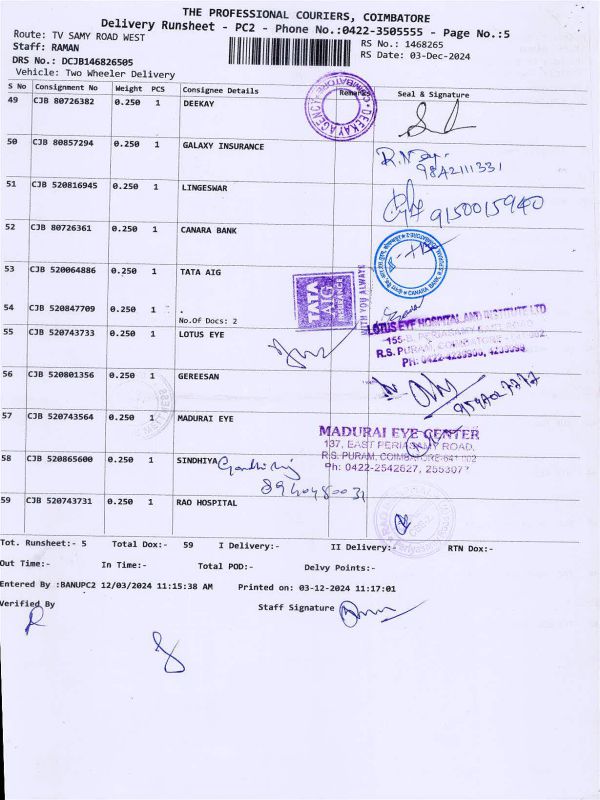 THE PROFESSIONAL COURIERS, COIMBATORE
Delivery Runsheet - PC2 - Phone No.:0422-3505555 - Page No.:5
Route: TV SAMY ROAD WEST
RS No.: 1468265
Staff: RAMAN
RS Date: 03-Dec-2024
DRS No.: DCJB146826505
Vehicle: Two Wheeler Delivery
S No Consignment No Weight PCS Consignee Details Remarks Seal & Signature
49 CJB 80726382 0.250 1 DEEKAY
DEEKAY AGENCY COIMBATORE
50 CJB 80857294 0.250 1 GALAXY INSURANCE
9842111331
51 CJB 520816945 0.250 1 LINGESWAR
9150015940
52 CJB 80726361 0.250 1 CANARA BANK
CANARA BANK, R.S.PURAM
53 CJB 520064886 0.250 1 TATA AIG
TATA AIG INSURANCE
WITH YOU ALWAYS
54 CJB 520847709 0.250 1 .
No.Of Docs: 2
55 CJB 520743733 0.250 1 LOTUS EYE
LOTUS EYE HOSPITAL AND INSTITUTE LTD
R.S. PURAM, COIMBATORE
56 CJB 520801356 0.250 1 GEREESAN
57 CJB 520743564 0.250 1 MADURAI EYE
MADURAI EYE CENTER
137, EAST PERIASAMY ROAD,
R.S. PURAM, COIMBATORE-641 002
Ph: 0422-2542627, 2553077
58 CJB 520865600 0.250 1 SINDHIYA
59 CJB 520743731 0.250 1 RAO HOSPITAL
Tot. Runsheet:- 5 Total Dox:- 59 I Delivery:- II Delivery:- RTN Dox:-
Out Time:- In Time:- Total POD:- Delvy Points:-
Entered By :BANUPC2 12/03/2024 11:15:38 AM Printed on: 03-12-2024 11:17:01
Verified By Staff Signature